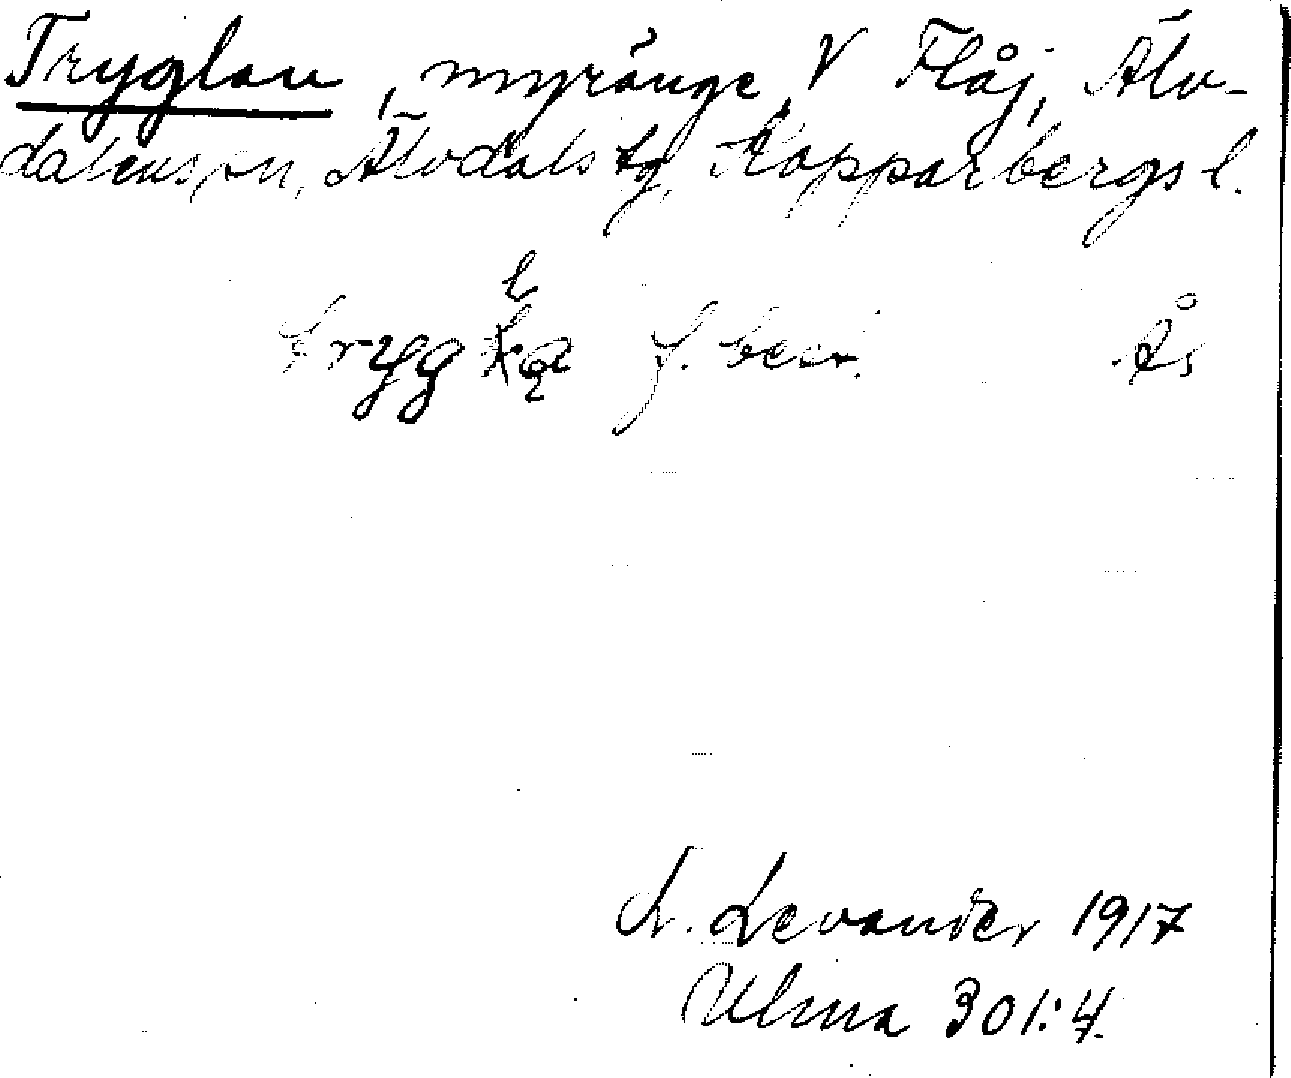 Tryglau, myränge, V Flåj, Älv-
dalens sn, Älvdals tg, Kopparbergs l.
f. best. Ås
L. Levander 1917
Ulma 301:4.